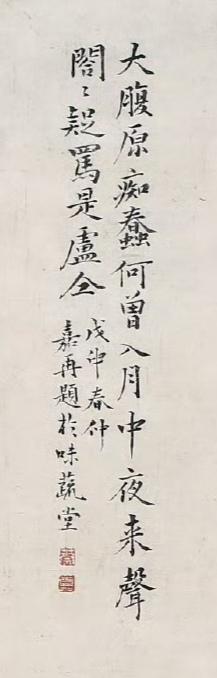 大腹原痴蠢何曾入月中夜来聲
閤〻疑罵是盧仝
戊申春仲
嘉再題於味蔬堂